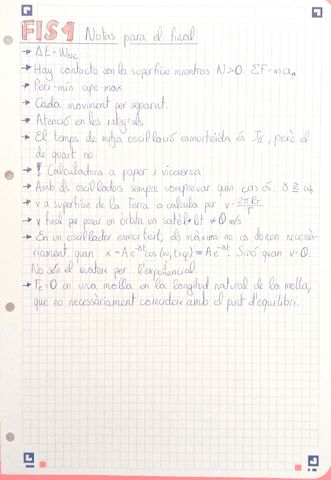 FIS1 Notas para el final
→ ΔE = W_NC
→ Hay contacto con la superficie mientras N>0. ΣF=ma_n
→ Peri-min apo-max
→ Cada moviment per separat.
→ Atenció en les integrals
→ El temps de mitja oscil·lació esmorteida és T/2, però el
de quart no.
→ ! Calculadora a paper i viceversa
→ Amb els oscil·ladors sempre comprovar quin cas és. γ ≷ ω₀
→ v a superfície de la Terra a calcula per v = 2πR_T/T
→ v final per posar en òrbita un satèl·lit ≠ 0 m/s
→ En un oscil·lador esmorteit, els màxims no es donen necessà-
riament quan x = Ae^-γt cos(ω₁t+φ) = Ae^-γt. Sinó quan v=0.
No són el mateix per l'exponencial.
→ F_e=0 en una molla en la longitud natural de la molla,
que no necessàriament coincideix amb el punt d'equilibri.